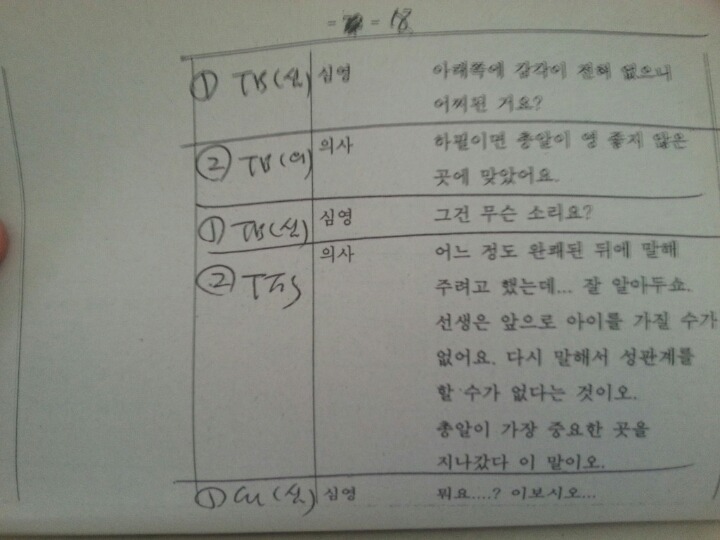 = = 18
① TB(심) 심영 아래쪽에 감각이 전혀 없으니
어찌된 거요?
② TB(의) 의사 하필이면 총알이 영 좋지 않은
곳에 맞았어요.
① TB(심) 심영 그건 무슨 소리요?
② TFS 의사 어느 정도 완쾌된 뒤에 말해
주려고 했는데... 잘 알아두쇼.
선생은 앞으로 아이를 가질 수가
없어요. 다시 말해서 성관계를
할 수가 없다는 것이오.
총알이 가장 중요한 곳을
지나갔다 이 말이오.
① CU(심) 심영 뭐요....? 이보시오...